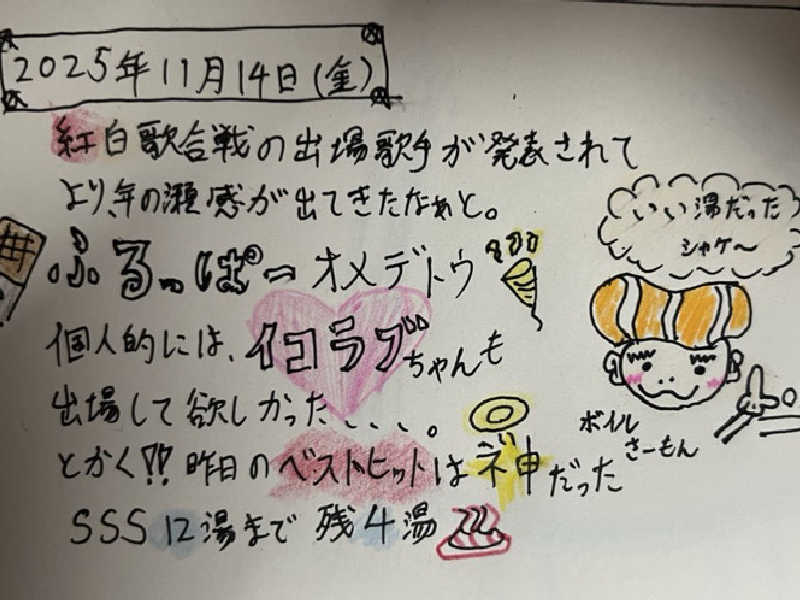 2025年11月14日(金)
紅白歌合戦の出場歌手が発表されて
より、年の瀬感が出てきたなぁと。
ふるっぱー オメデトウ
個人的には、イコラブちゃんも
出場して欲しかった、、、。
とかく!! 昨日のベストヒットは神だった
SSS12湯まで 残4湯
いい湯だった
シャケ〜
ボイル
さーもん